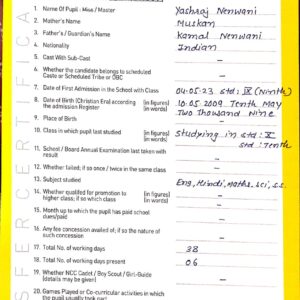 1. Name Of Pupil - Miss / Master Yashraj Nenwani
2. Mother's Name Muskan
3. Father's / Guardian's Name Kamal Nenwani
4. Nationality Indian
5. Cast With Sub-Cast –
6. Whether the candidate belongs to scheduled
Caste or Scheduled Tribe or OBC –
7. Date of First Admission in the School with Class 04.05.23 std : IX (Ninth)
8. Date of Birth (Christian Era) according [in figures] 10.05.2009 Tenth May
the admission Register [in words] Two Thousand Nine
9. Place of Birth –
10. Class in which pupil last studied [in figures] Studying in std : X
[in words] std : Tenth
11. School / Board Annual Examination last taken with
result –
12. Whether failed; if so once / twice in the same class –
13. Subject studied Eng, Hindi, Maths, Sci, S.S.
14. Whether qualified for promotion to [in figures]
higher class; if so which class [in words] –
15. Month up to which the pupil has paid school
dues/paid –
16. Any fee concession availed of; if so the nature of
such concession –
17. Total No. of working days 38
18. Total No. of working days present 06
19. Whether NCC Cadet / Boy Scout / Girl-Guide
(details may be given) –
20. Games Played or Co-curricular activities in which
the pupil usually took part
SFER CERTIFICA